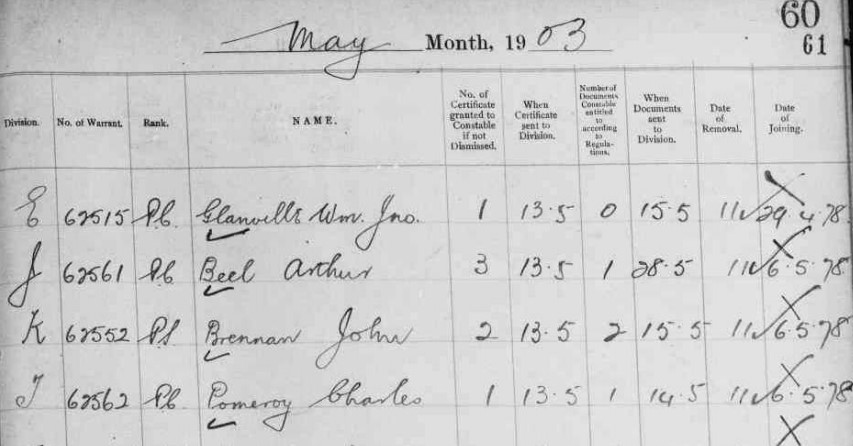 60
May Month, 1903 61
Division. No. of Warrant. Rank. NAME. No. of Certificate granted to Constable if not Dismissed. When Certificate sent to Division. Number of Documents Constable entitled to according to Regulations. When Documents sent to Division. Date of Removal. Date of Joining.
E 62515 P.C. Glanvill Wm. Jno. 1 13.5 0 15.5 11 29.4.78
J 62561 P.C. Beel Arthur 3 13.5 1 28.5 11 6.5.78
K 62552 P.S. Brennan John 2 13.5 2 15.5 11 6.5.78
62562 P.C. Pomeroy Charles 1 13.5 1 14.5 11 6.5.78